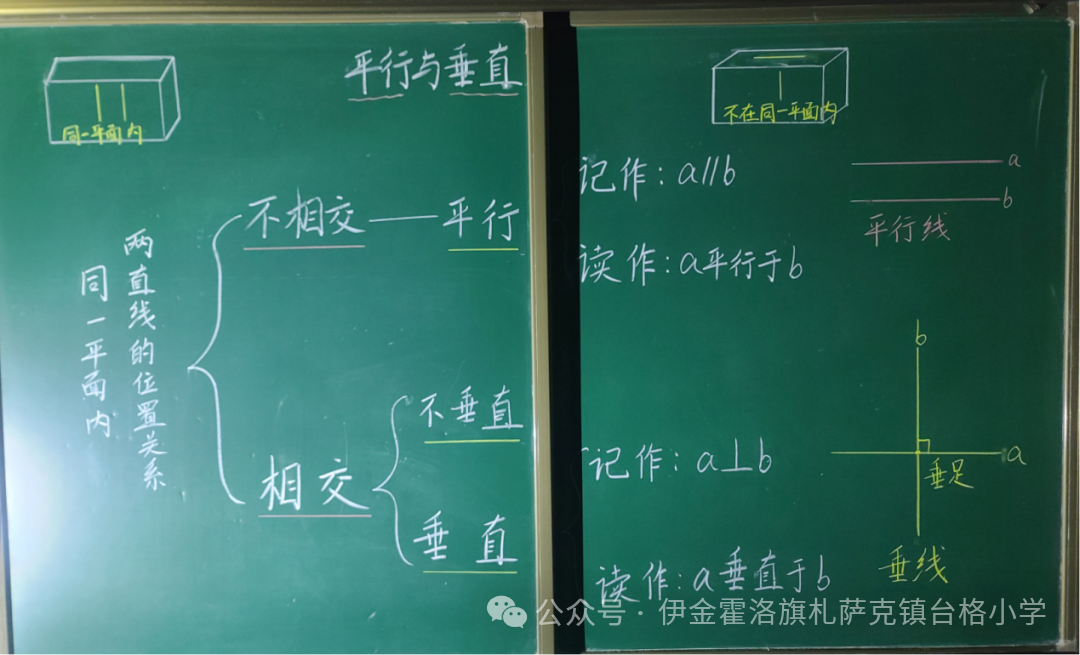 平行与垂直
同一平面内
不相交——平行
同一平面内
两直线的位置关系
不垂直
相交
垂直
不在同一平面内
记作：a∥b
a
b
平行线
读作：a平行于b
b
记作：a⊥b
a
垂足
读作：a垂直于b
垂线
公众号·伊金霍洛旗札萨克镇台格小学